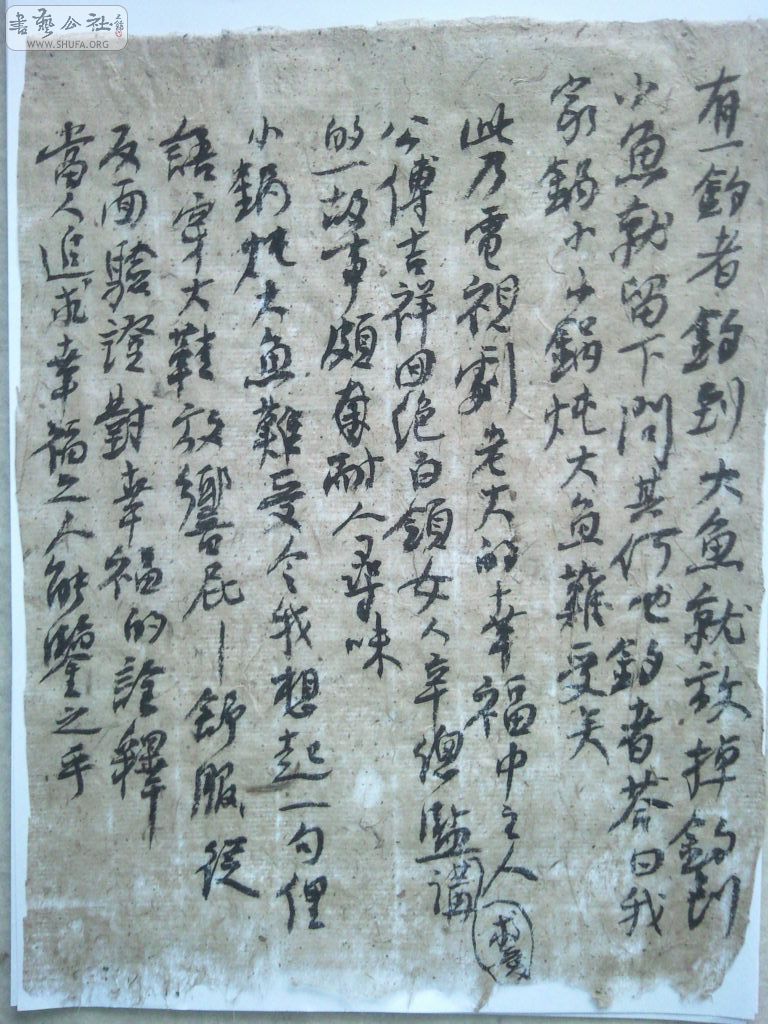 書藝公社
WWW.SHUFA.ORG
有一釣者釣到大魚就放掉釣到
小魚就留下問其何也釣者答曰我
家鍋小小鍋炖大魚難受矣
此乃電視劇老大的幸福中主人
公傅吉祥回绝白領女人辛總監講
的一故事頗有耐人尋味
小鍋炖大魚難受令我想起一句俚
語穿大鞋放響屁—舒服從
反面驗證對幸福的詮釋
當人追求幸福之人能鑒之乎